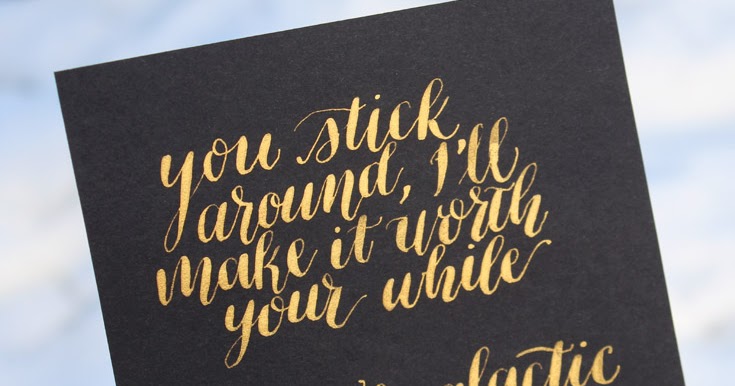 you stick
around, I'll
make it worth
your while